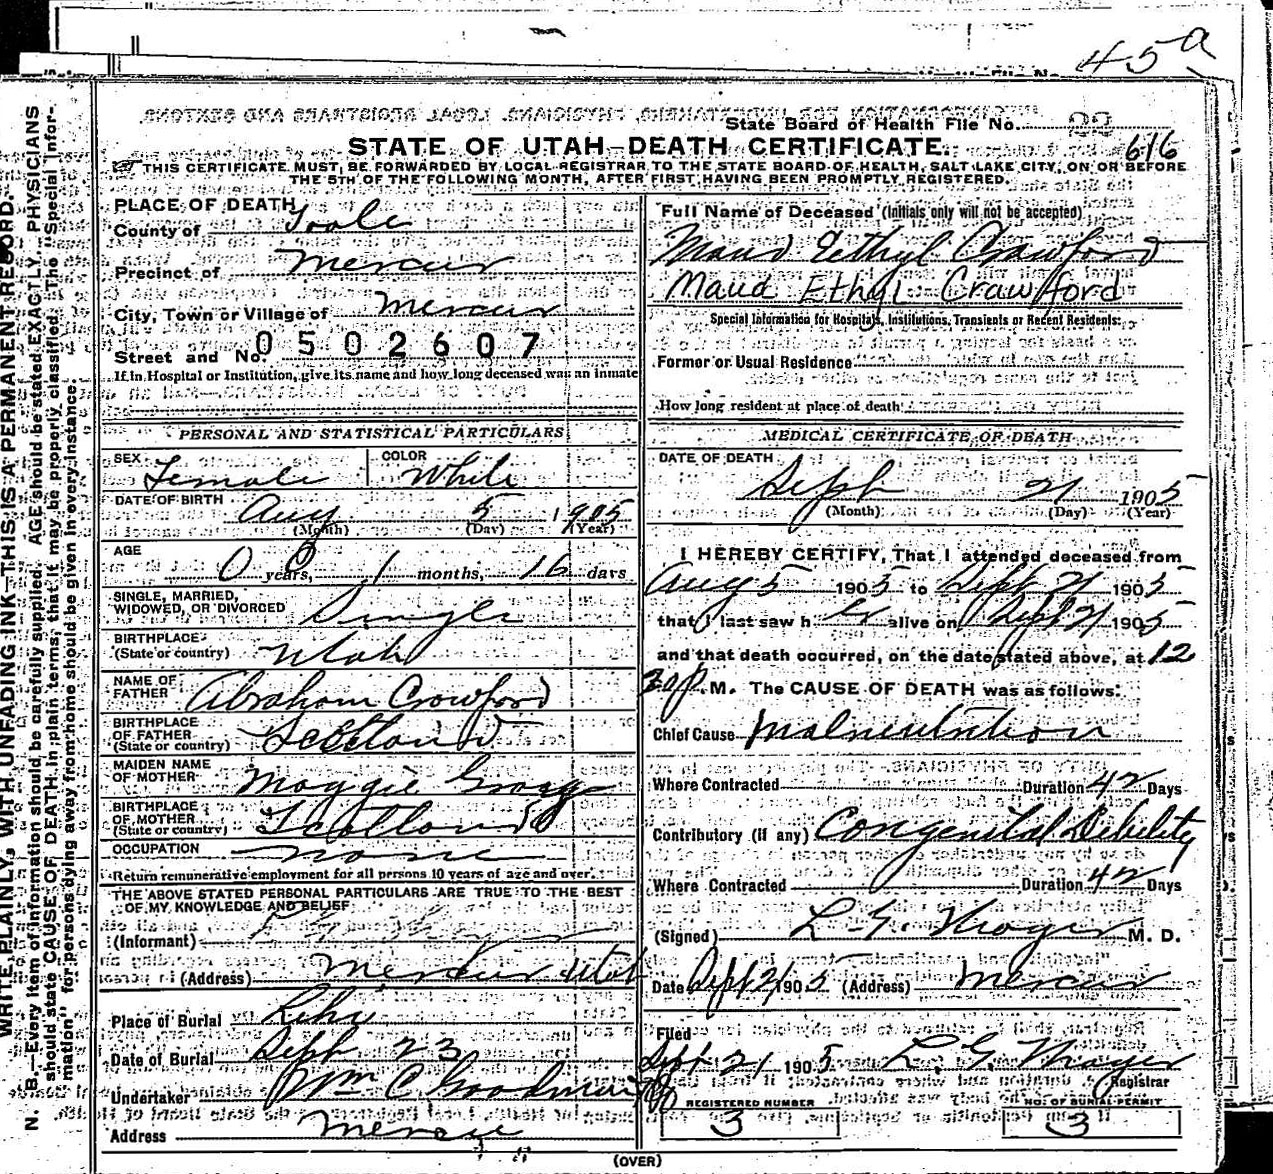 45a
State Board of Health File No. 22
616
STATE OF UTAH—DEATH CERTIFICATE.
THIS CERTIFICATE MUST BE FORWARDED BY LOCAL REGISTRAR TO THE STATE BOARD OF HEALTH, SALT LAKE CITY, ON OR BEFORE
THE 5TH OF THE FOLLOWING MONTH, AFTER FIRST HAVING BEEN PROMPTLY REGISTERED.
WRITE PLAINLY, WITH UNFADING INK—THIS IS A PERMANENT RECORD.
N. B.—Every item of information should be carefully supplied. AGE should be stated EXACTLY. PHYSICIANS
should state CAUSE OF DEATH in plain terms, that it may be properly classified. The "Special Infor-
mation" for persons dying away from home should be given in every instance.
PLACE OF DEATH
County of Tooele
Precinct of Mercur
City, Town or Village of Mercur
Street and No. 0502607
If in Hospital or Institution, give its name and how long deceased was an inmate
PERSONAL AND STATISTICAL PARTICULARS
SEX Female COLOR White
DATE OF BIRTH Aug 5 1905
(Month) (Day) (Year)
AGE 0 years, 1 months, 16 days
SINGLE, MARRIED,
WIDOWED, OR DIVORCED Single
BIRTHPLACE
(State or country) Utah
NAME OF
FATHER Abraham Crawford
BIRTHPLACE
OF FATHER
(State or country) Scotland
MAIDEN NAME
OF MOTHER Maggie
BIRTHPLACE
OF MOTHER
(State or country) Scotland
OCCUPATION none
Return remunerative employment for all persons 10 years of age and over.
THE ABOVE STATED PERSONAL PARTICULARS ARE TRUE TO THE BEST
OF MY KNOWLEDGE AND BELIEF
(Informant)
(Address) Mercur Utah
Place of Burial Lehi
Date of Burial Sept 23
Undertaker Wm C Goodman
Address Mercur
Full Name of Deceased (Initials only will not be accepted)
Maud Ethyl Crawford
Maud Ethyl Crawford
Special Information for Hospitals, Institutions, Transients or Recent Residents:
Former or Usual Residence
How long resident at place of death
MEDICAL CERTIFICATE OF DEATH
DATE OF DEATH
Sept 21 1905
(Month) (Day) (Year)
I HEREBY CERTIFY, That I attended deceased from
Aug 5 1905 to Sept 21 1905
that I last saw her alive on Sept 21 1905
and that death occurred, on the date stated above, at 12
30 P.M. The CAUSE OF DEATH was as follows:
Chief Cause Malnutrition
Where Contracted Duration 42 Days
Contributory (if any) Congenital Debility
Where Contracted Duration 42 Days
(Signed) M. D.
Date Sept 21 1905 (Address) Mercur
Filed
Sept 21 1905
Registrar
REGISTERED NUMBER NO. OF BURIAL PERMIT
3 3
(OVER)